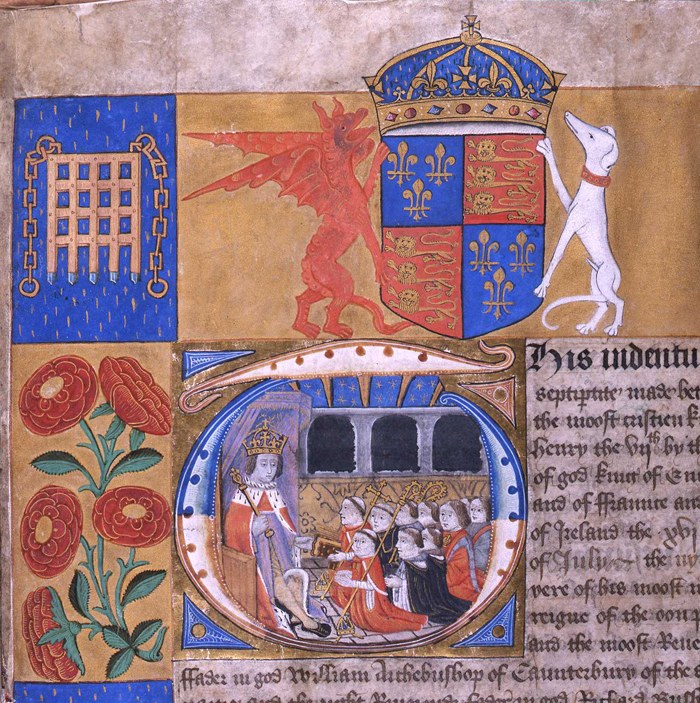 His indentu
septiptite made bet
the moost cristien k
Henry the vijth by t
of god king of En
and of ffraunce an
of Ireland the xvj
of July the
yere of his moost
reigne of the
and the moost Reue
ffader in god William Archebusshop of Caunterbury of the
Richard